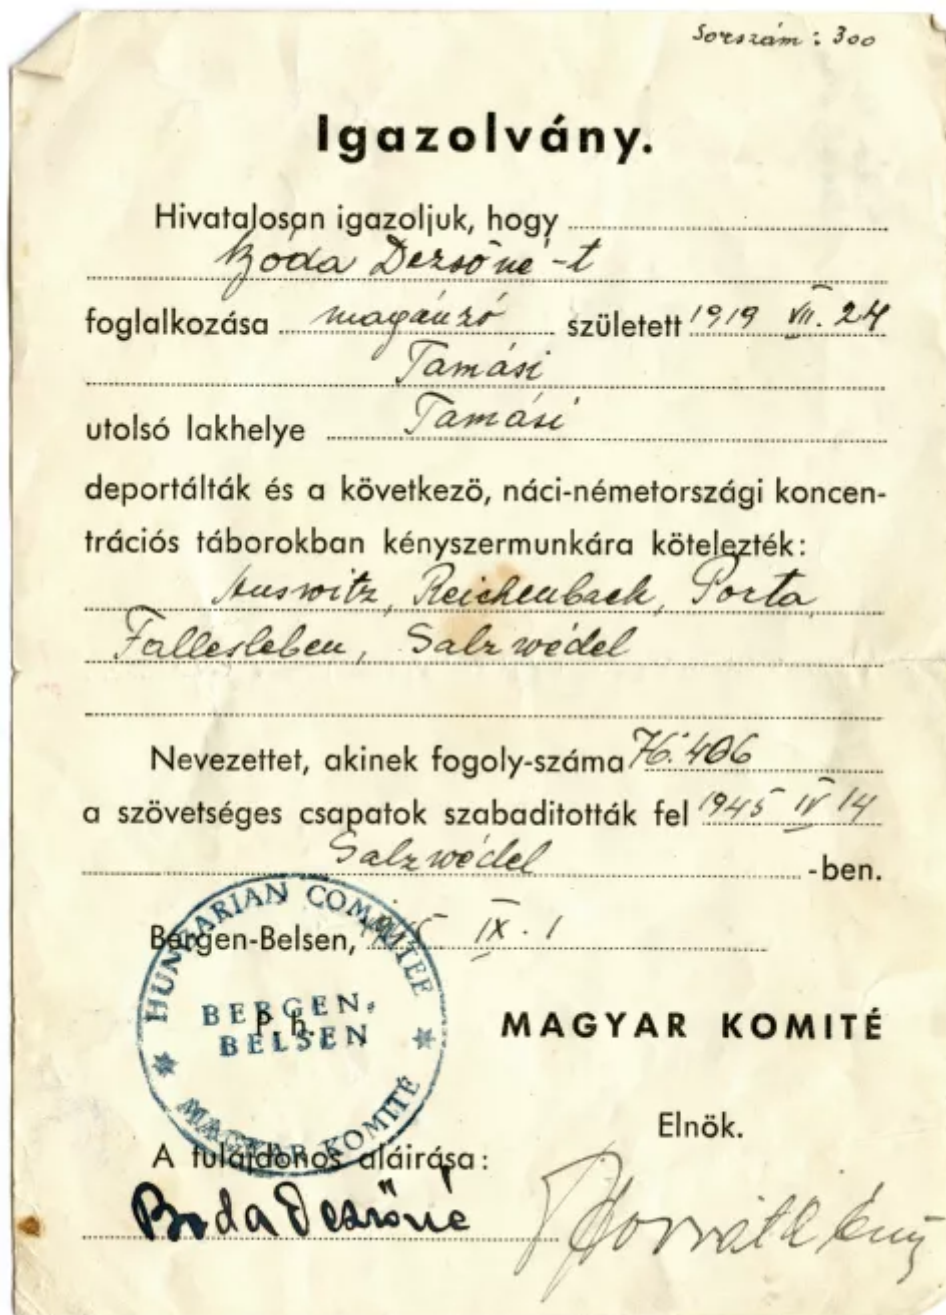 Sorszám: 300
Igazolvány.
Hivatalosan igazoljuk, hogy
Bóda Dezsőné-t
foglalkozása magánzó született 1919 VII. 24
Tamási
utolsó lakhelye Tamási
deportálták és a következö, náci-németországi koncen-
trációs táborokban kényszermunkára kötelezték:
Auswitz, Reichenback, Porta
Fallesleben, Salzwédel
Nevezettet, akinek fogoly-száma 76.406
a szövetséges csapatok szabaditották fel 1945 IV 14
Salzwédel -ben.
Bergen-Belsen, 1945 IX. 1
HUNGARIAN COMMITEE
BERGEN-
BELSEN
P. h.
MAGYAR KOMITÉ
MAGYAR KOMITÉ
Elnök.
A tulajdonos aláirása:
Boda Dezsőné
Horváth